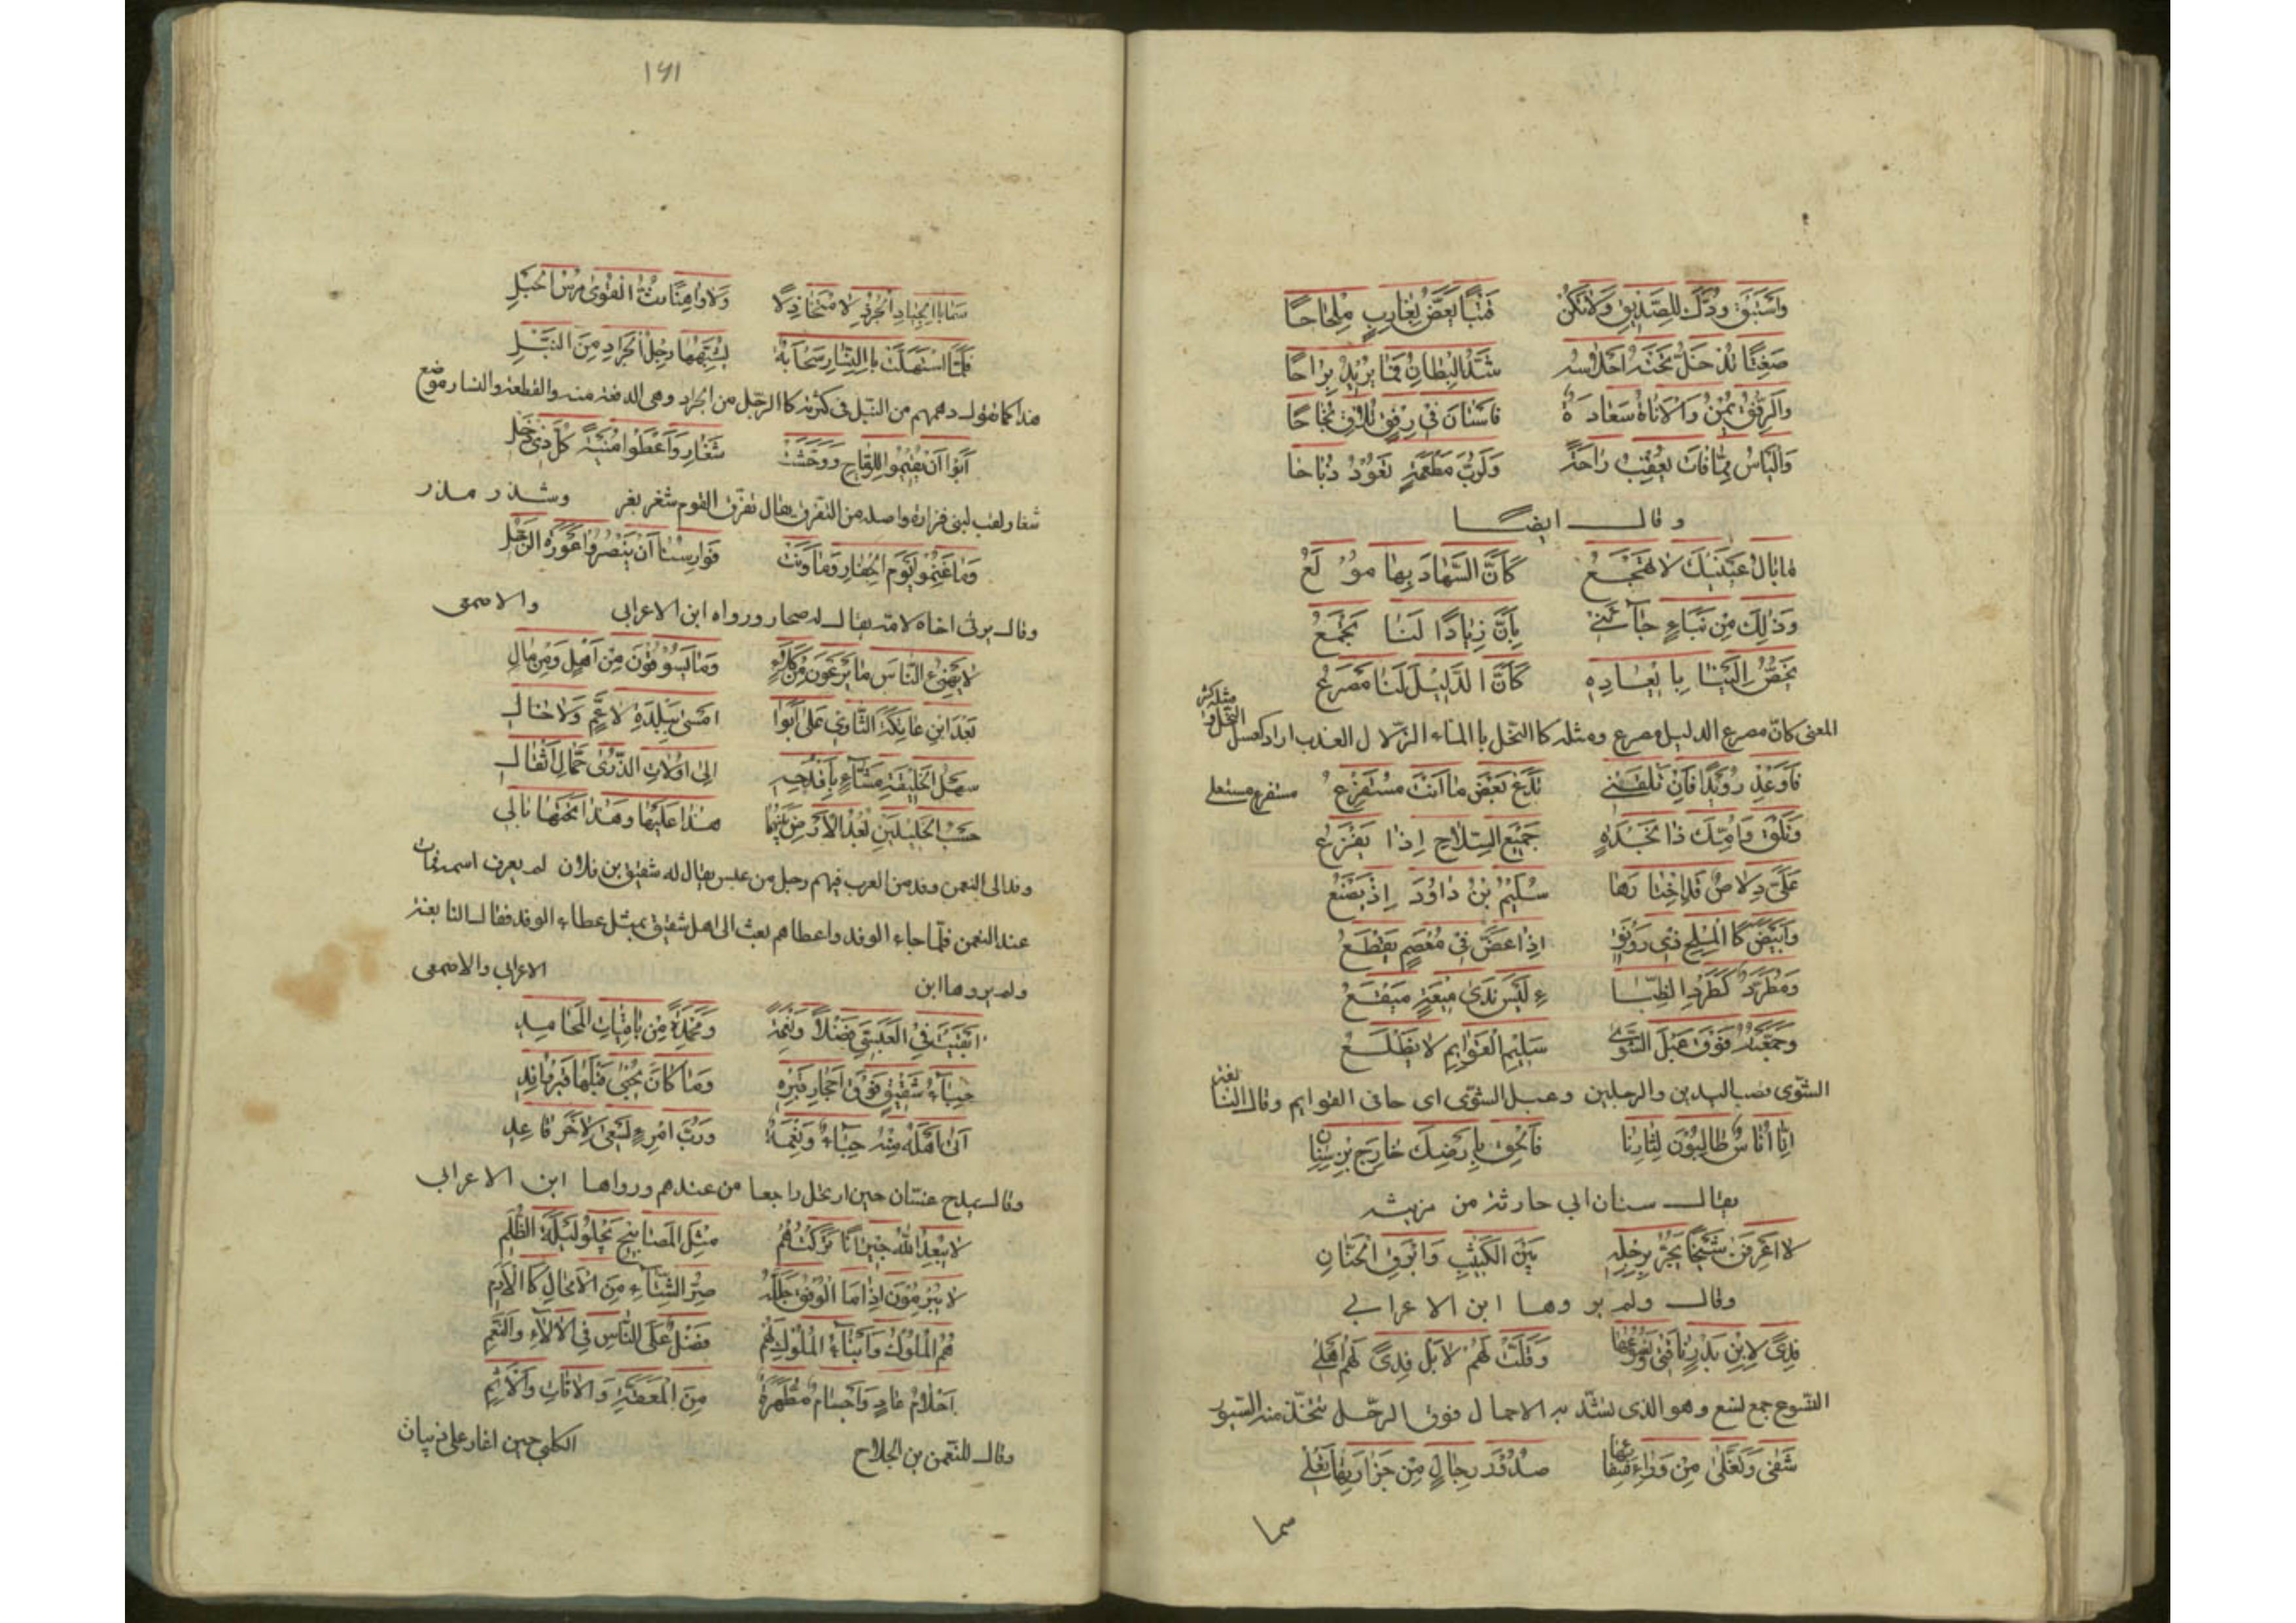 واستبق ودك للصديق ولا تكن قتبا يعض بغارب ملحاحا
صغنا تدخل تحته احلاسه شد البطان فما يريد براحا
والرفق يمن والاناة سعادة فاستان في رفق تلاق نجاحا
والياس مما فات يعقب راحة ولرب مطعمة تعود ذباحا
وقال ايضا
ما بال عينيك لا تهجع كان السهاد بها مولع
وذلك من نباء جاءني بان زيادا لنا يجمع
يخص الينا با يعاده كان الدليل لنا مصرع
المعنى كان مصرع الدليل مصرع ومثله كا النخل با الماء الزلال العذب اراد كعسل النحل و
مثله كثير
فاوعد رويدا فان تلقني تدع بعض ما انت مستفرع مستفرع مستعلي
وتلق وامك ذا نجدة جميع السلاح اذا يفزع
علي دلاص قد اختارها سليم بن داود اذ يصنع
وابيض كا الملح ذي رونق اذا عض في معصم يقطع
ومطرد كطرد الظبا ء ليس ندى ميعة ميقع
وحمته فوق عبل الشوى سليم القوايم لا يظلع
الشوى نصب اليدين والرجلين وعبل الشوى اى حافى القوايم وقال النابغة
انا اناس طالبون لثارنا فالحق بارضك خارج بن سنان
يقال سنان ابي حارثة من مزينه
لا اعرفن شيخا يجر برجله بين الكثيب وابرق الحنان
وقال ولم يروها ابن الاعرابي
فدى لابن بدر ناقتي ونسوعها وقلت لهم لا بل فدى لهم اهلي
النسوع جمع نسع وهو الذى تشد به الاحمال فوق الرحل تتخذ منه السيور
شفى وتغلى من وراء شفائها صدور رجال من حزازتها تغلي
سما
١٦١
سما با الجياد الجرد لا متخاذلا ولا واهنا رث القوى مرس الحبل
فلما استهلت با النسار سحابة يشبهها رجل الجراد من النبل
هذا كما تقول دهمهم من النبل في كثرته كا الرجل من الجراد وهى الدفعة منه والقطعة والنسار موضع
ابوا ان يقيموا للرماح ووحشت شغار واعطوا منية كل ذي ذحل
شغار لقب لبنى فزارة واصله من التفرق يقال تفرق القوم شغر بغر وشذر مذر
وما غنموا يوم الجفار وما ونت فوارسنا ان ينصروا عورة الرجل
وقال يرثى اخاه لامه يقال له صحار ورواه ابن الاعرابى والاصمعى
لا يهنئ الناس ما يرعون من كلاء وما يسوقون من اهل ومن مال
بعد ابن عاتكة الثاوي على ابوا امسى ببلدة لا عم ولا خال
سهل الخليقة مشاء باقدحه الى اولات الذرى حمال اثقال
حسب الخليلين بعد الارض بينهما هذا عليها وهذا تحتها بالي
وفد الى النعمن وفد من العرب فيهم رجل من عبس يقال له شقيق بن فلان لم يعرف اسمه فمات
عند النعمن فلما جاء الوفد واعطاهم بعث الى اهل شقيق بمثل عطاء الوفد فقال النابغة
ولم يروها ابن الاعرابي والاصمعى
ابقيت في العبسي فضلا ونعمة ومحمدة من باقيات المحامد
حباء شقيق فوق احجار قبره وما كان يحبى قبلها قبر وافد
اتى اهله منه حباء ونعمة ورب امرء يسعى لاخر قاعد
وقال يمدح غسان حين ارتحل راجعا من عندهم ورواها ابن الاعرابي
لا يبعد الله جيرانا تركتهم مثل المصابيح تجلو ليلة الظلم
لا يبرمون اذا ما الافق جلله صر الشتاء من الامحال كا الادم
هم الملوك وابناء الملوك لهم فضل على الناس في الالاء والنعم
احلام عاد واجسام مطهرة من المعقة والافات والاثم
وقال للنعمن بن الجلاح الكلبي حين اغار على ذبيان